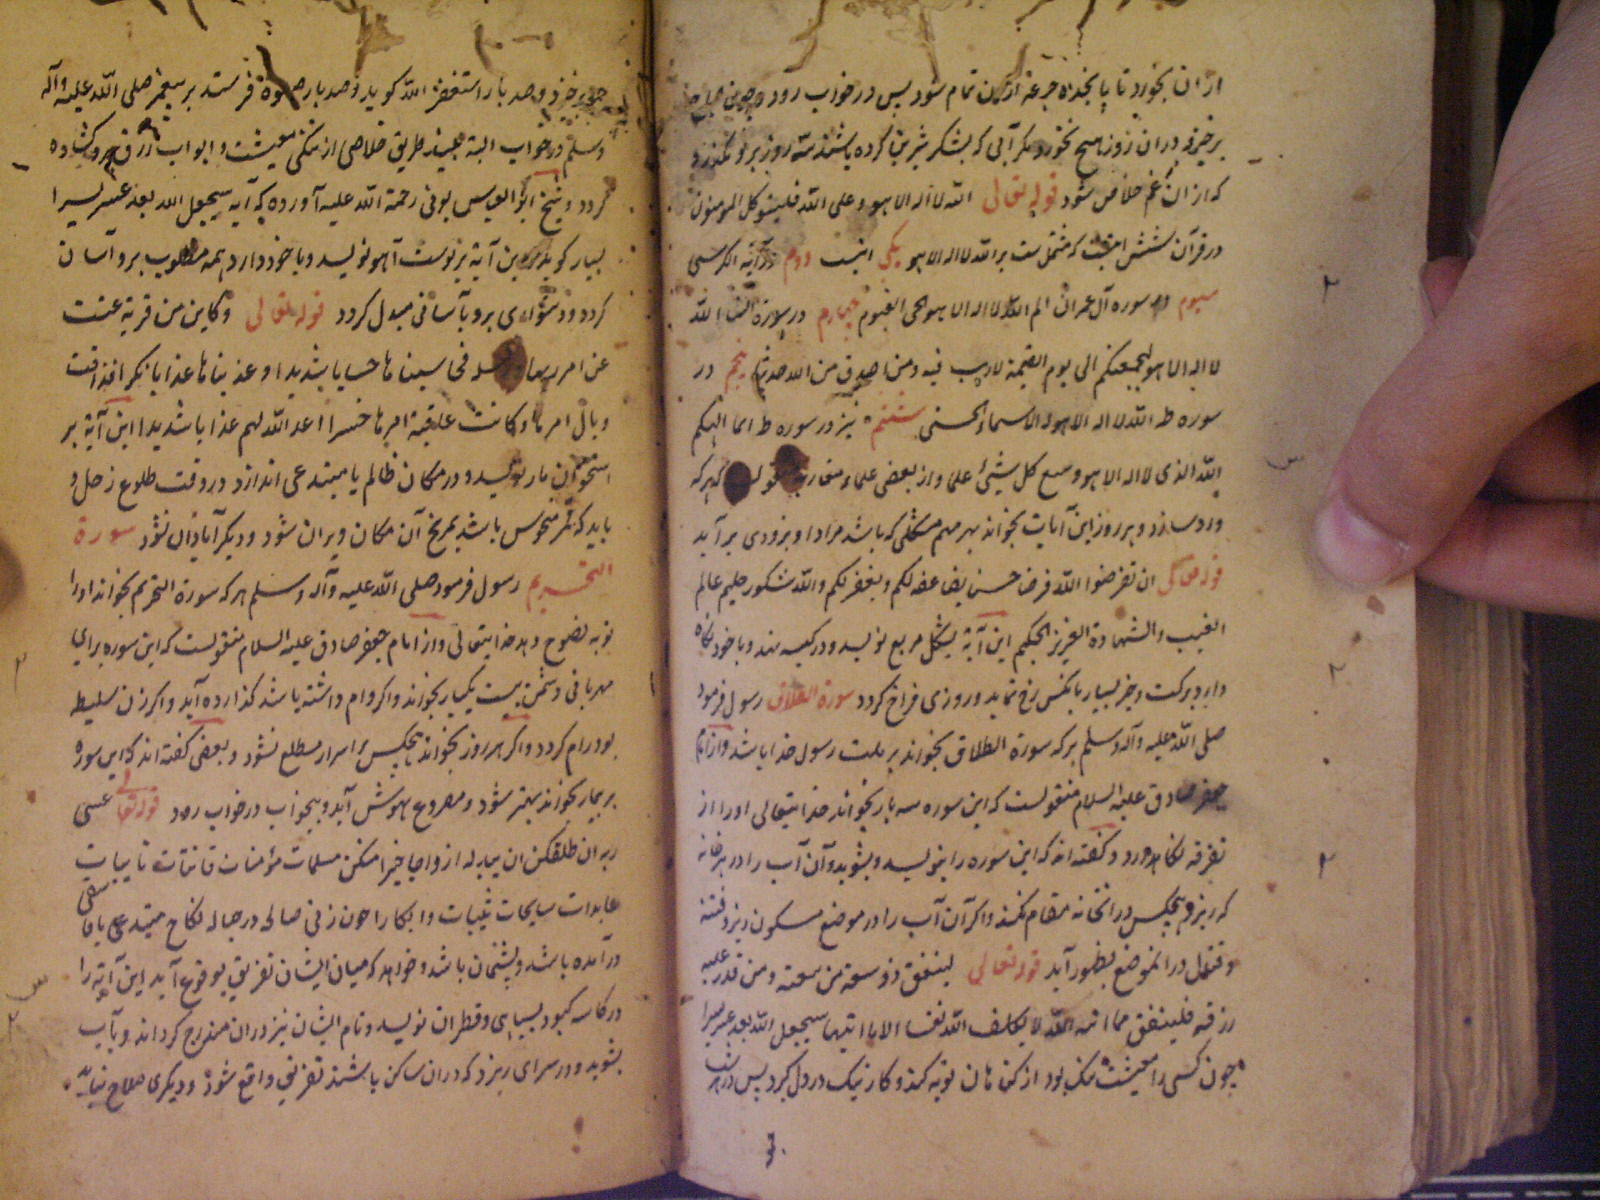 ازان بخورد تا پانجده جرعه ازان تمام شود پس در خواب رود و چون صباح
برخیزد دران روز هیچ نخورد مگر آبی که بشکر شربت کرده باشند سه روز برو نگذرد
که ازان غم خلاص شود قوله تعالی الله لا اله الا هو وعلی الله فلیتوکل المومنون
در قرآن شش آیتست که مشتمل ست بر الله لا اله الا هو یکی اینست دوم در آیة الکرسی
سیوم در سوره آل عمران الم الله لا اله الا هو الحی القیوم چهارم در سورة النسا الله
لا اله الا هو لیجمعنکم الی یوم القیمة لاریب فیه ومن اصدق من الله حدیثا پنجم در
سوره طه الله لا اله الا هو له الاسماء الحسنی ششم نیز در سوره طه انما الهکم
الله الذی لا اله الا هو وسع کل شیئ علما و از بعضی علماء مغاربه که هرکه
ورد سازد و هر روز این آیات بخواند بهر مهم مشکلی که باشد مراد او بزودی بر آید
قوله تعالی ان تقرضوا الله قرضا حسنا یضاعفه لکم ویغفر لکم والله شکور حلیم عالم
الغیب والشهادة العزیز الحکیم این آیة بشکل مربع نویسد و در کیسه نهد و با خود نگاه
دارد برکت و خیر بسیار بانکس رخ نماید و روزی فراخ گردد سورة الطلاق رسول فرمود
صلی الله علیه وآله وسلم هرکه سورة الطلاق بخواند بر ملت رسول خدا باشد و از امام
جعفر صادق علیه السلام منقولست که این سوره سه بار بخواند خدایتعالی اورا از
تفرقه نگاهدارد و گفته اند که این سوره را بنویسد و بشوید و آن آب را در هر خانه
که ریزد هیچکس در انخانه مقام نکند و اگر آن آب را در موضع مسکون ریزد فتنه
و قتل در انموضع بظهور آید قوله تعالی لینفق ذو سعة من سعته ومن قدر علیه
رزقه فلینفق مما اتیه الله لا یکلف الله نفسا الا ما اتیها سیجعل الله بعد عسر یسرا
چون کسی را معیشت تنگ بود از گناهان توبه کند و کار نیک در دل گیرد پس در شب
جمعه برخیزد و صد بار استغفر الله گوید و صد بار صلوة فرستد بر پیغمبر صلی الله علیه وآله
وسلم در خواب البته بیند طریق خلاصی از تنگی معیشت و ابواب رزق برو گشاده
گردد و شیخ ابو العباس بونی رحمة الله علیه آورده که آیه سیجعل الله بعد عسر یسرا
بسیار گوید و این آیة بر پوست آهو نویسد و با خود دارد همه مطلوب برو آسان
گردد و دشواری برو بآسانی مبدل گردد قوله تعالی وکاین من قریة عتت
عن امر ربها ورسله فحاسبناها حسابا شدیدا وعذبناها عذابا نکرا فذاقت
وبال امرها وکانت عاقبة امرها خسرا اعد الله لهم عذابا شدیدا این آیة بر
استخوان مار نویسد و در مکان ظالم یا مبتدعی اندازد در وقت طلوع زحل و
باید که قمر منحوس باشد بمریخ آن مکان ویران شود و دیگر آبادان نشود سورة
التحریم رسول فرمود صلی الله علیه وآله وسلم هرکه سورة التحریم بخواند اورا
توبه نصوح دهد خدایتعالی و از امام جعفر صادق علیه السلام منقولست که این سوره برای
مهربانی دشمن بیست یکبار بخواند و اگر وام داشته باشد گذارده آید و اگر زن سلیطه
بود رام گردد و اگر هر روز بخواند هیچکس بر اسرار مطلع نشود و بعضی گفته اند که این سوره
بر بیمار بخواند بهتر شود و مصروع بهوش آید و بیخواب در خواب رود قوله تعالی عسی
ربه ان طلقکن ان یبدله ازواجا خیرا منکن مسلمات مؤمنات قانتات تایبات
عابدات سایحات ثیبات وابکارا چون زنی صالحه در حباله نکاح مبتدعی یا فاسقی
در آمده باشد و پشیمان باشد و خواهد که میان ایشان تفریق بوقوع آید این آیة را
در کاسه کبود بسیاهی و قطران نویسد و نام ایشان نیز دران مندرج گرداند و بآب
بشوید و در سرای ریزد که دران ساکن باشند تفریق واقع شود و دیگری صلاح نیابد